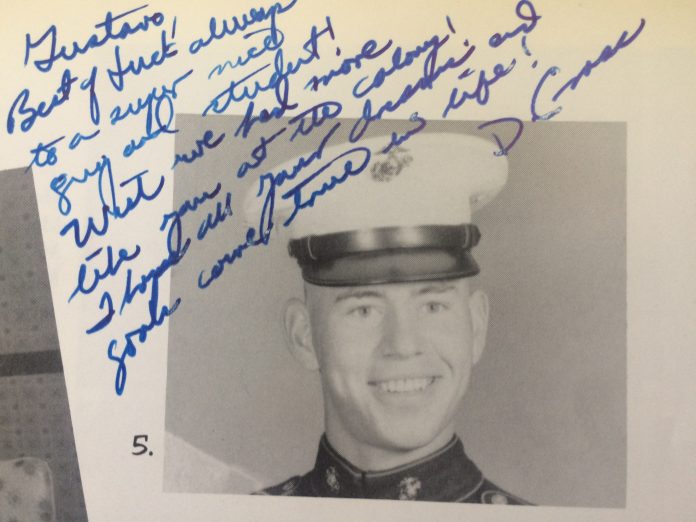 Gustavo,
Best of Luck always
to a super nice
guy and student!
Wish we had more
like you at the colony!
I hope all your dreams and
goals come true in life!
D Cross
5.